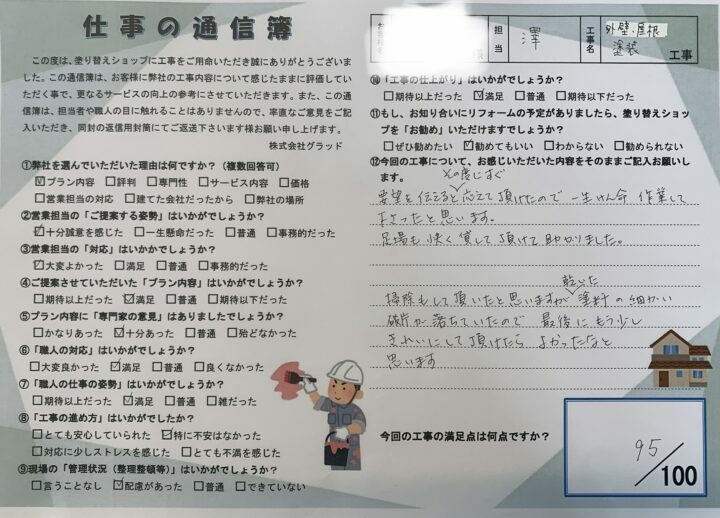 仕事の通信簿
この度は、塗り替えショップに工事をご用命いただき誠にありがとうございま
した。この通信簿は、お客様に弊社の工事内容について感じたままに評価してい
ただく事で、更なるサービスの向上の参考にさせていただきます。また、この通
信簿は、担当者や職人の目に触れることはありませんので、率直なご意見をご記
入いただき、同封の返信用封筒にてご返送下さいます様お願い申し上げます。
株式会社グラッド
①弊社を選んでいただいた理由は何ですか？（複数回答可）
☑プラン内容 □評判 □専門性 □サービス内容 □価格
□営業担当の対応 □建てた会社だったから □弊社の場所
②営業担当の「ご提案する姿勢」はいかがでしょうか？
☑十分誠意を感じた □一生懸命だった □普通 □事務的だった
③営業担当の「対応」はいかかでしょうか？
☑大変よかった □満足 □普通 □事務的だった
④ご提案させていただいた「プラン内容」はいかがでしょうか？
□期待以上だった ☑満足 □普通 □期待以下だった
⑤プラン内容に「専門家の意見」はありましたでしょうか？
□かなりあった ☑十分あった □普通 □殆どなかった
⑥「職人の対応」はいかがでしょうか？
□大変良かった ☑満足 □普通 □良くなかった
⑦「職人の仕事の姿勢」はいかがでしょうか？
□期待以上だった ☑満足 □普通 □雑だった
⑧「工事の進め方」はいかがでしたか？
□とても安心していられた ☑特に不安はなかった
□対応に少しストレスを感じた □とても不満を感じた
⑨現場の「管理状況（整理整頓等）」はいかがでしょうか？
□言うことなし ☑配慮があった □普通 □できていない
様 担当 澤 工事名 外壁、屋根 塗装 工事
⑩「工事の仕上がり」はいかがでしょうか？
□期待以上だった ☑満足 □普通 □期待以下だった
⑪もし、お知り合いにリフォームの予定がありましたら、塗り替えショッ
プを「お勧め」いただけますでしょうか？
□ぜひ勧めたい ☑勧めてもいい □わからない □勧められない
⑫今回の工事について、お感じいただいた内容をそのままご記入お願いし
ます。
その度にすぐ
要望を伝えると応えて頂けたので一生けん命 作業して
下さったと思います。
足場も快く貸して頂けて助かりました。
乾いた
掃除もして頂いたと思いますが塗料の細かい
破片が落ちていたので 最後にもう少し
きれいにして頂けたら よかったなと
思います
今回の工事の満足点は何点ですか？
95/100